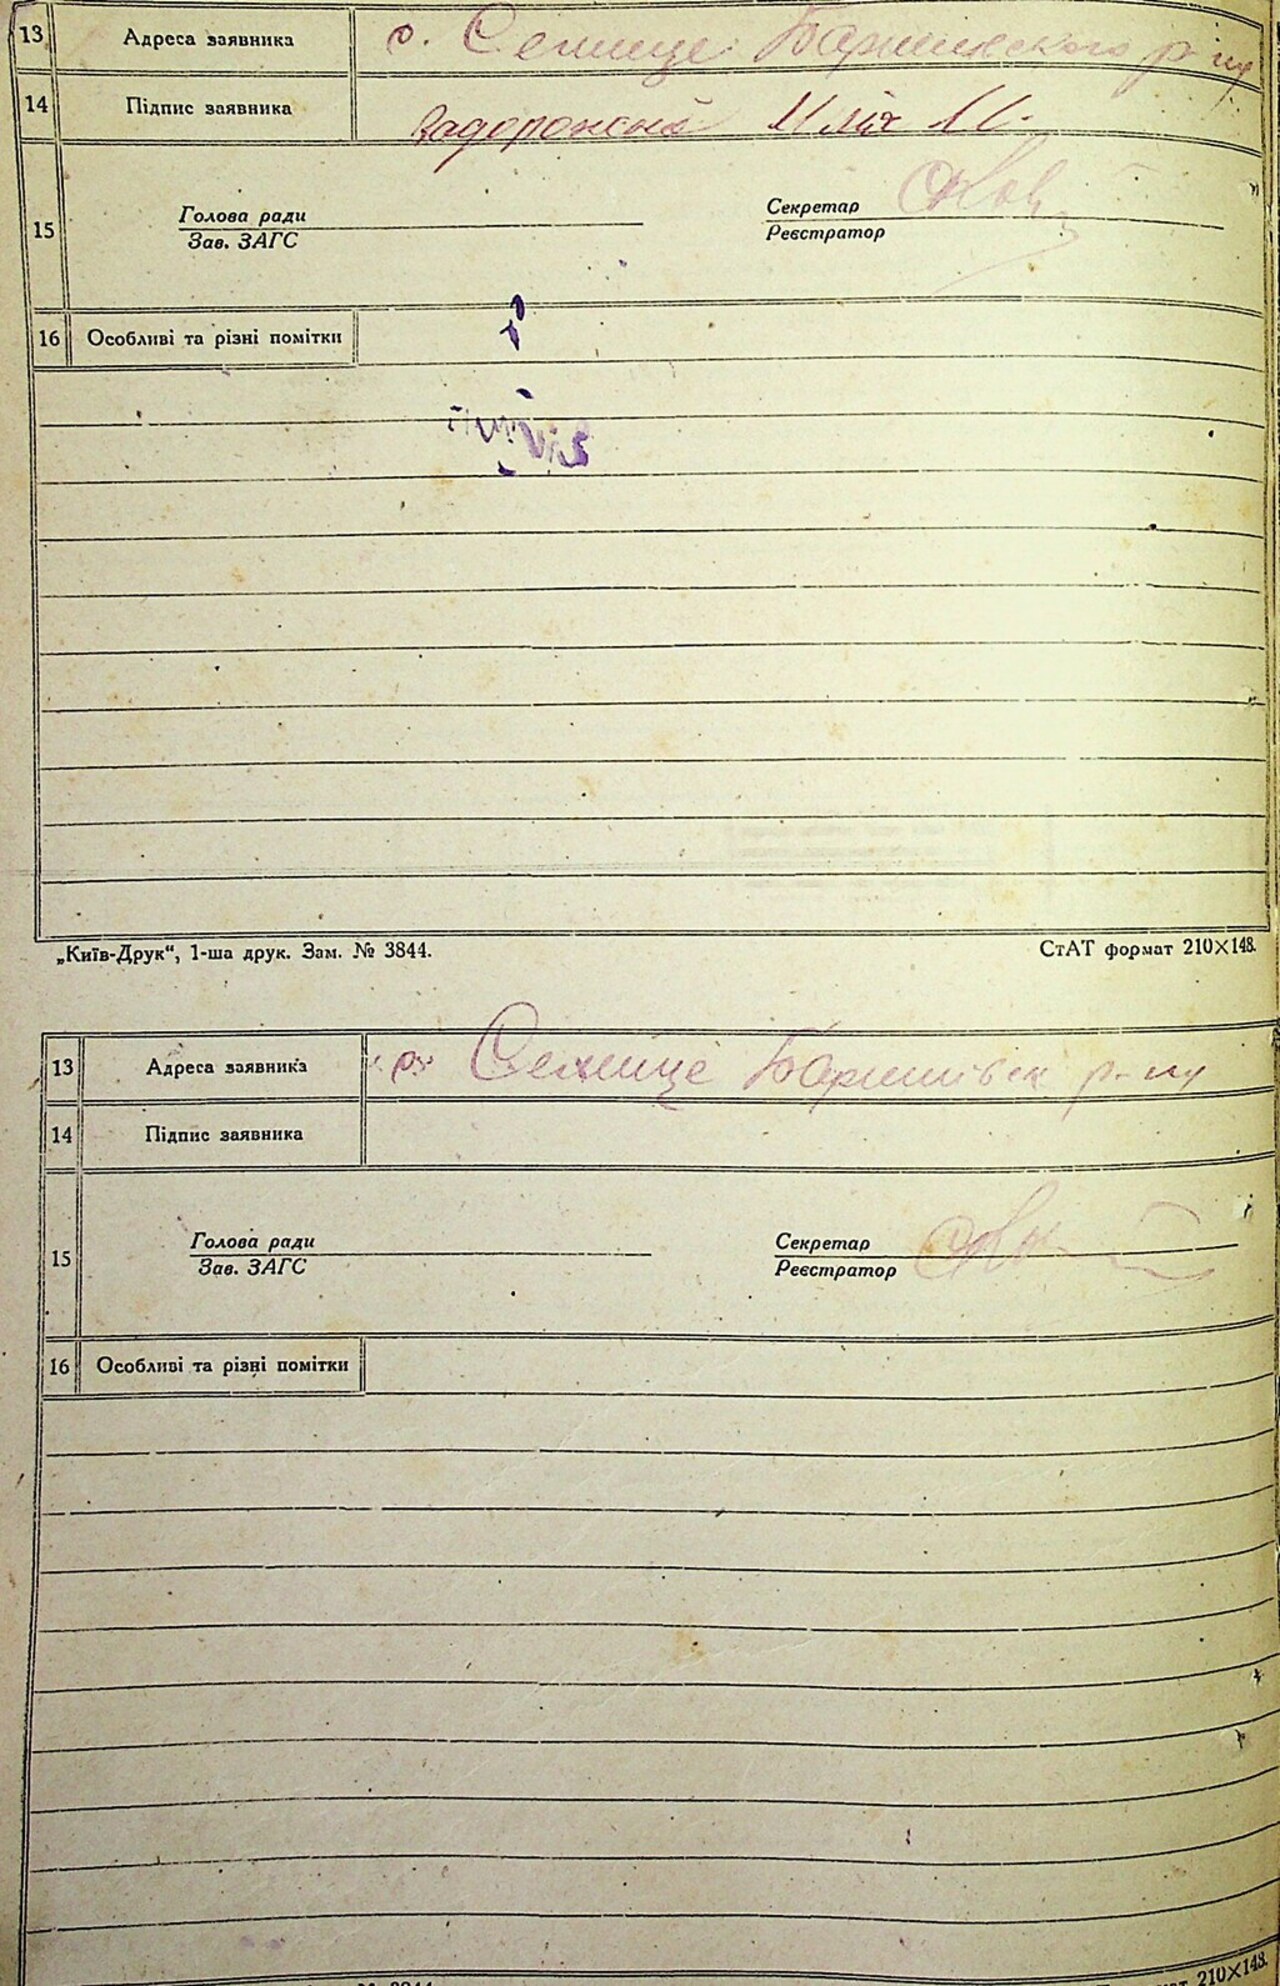 13 Адреса заявника с. Селище Баришевского р-ну
14 Підпис заявника Задорожна
15 Голова ради Секретар
Зав. ЗАГС Реєстратор
16 Особливі та різні помітки
„Київ-Друк“, 1-ша друк. Зам. № 3844. СтАТ формат 210×148.
13 Адреса заявника с. Селище Баришівськ р-ну
14 Підпис заявника
15 Голова ради Секретар
Зав. ЗАГС Реєстратор
16 Особливі та різні помітки
210×148.